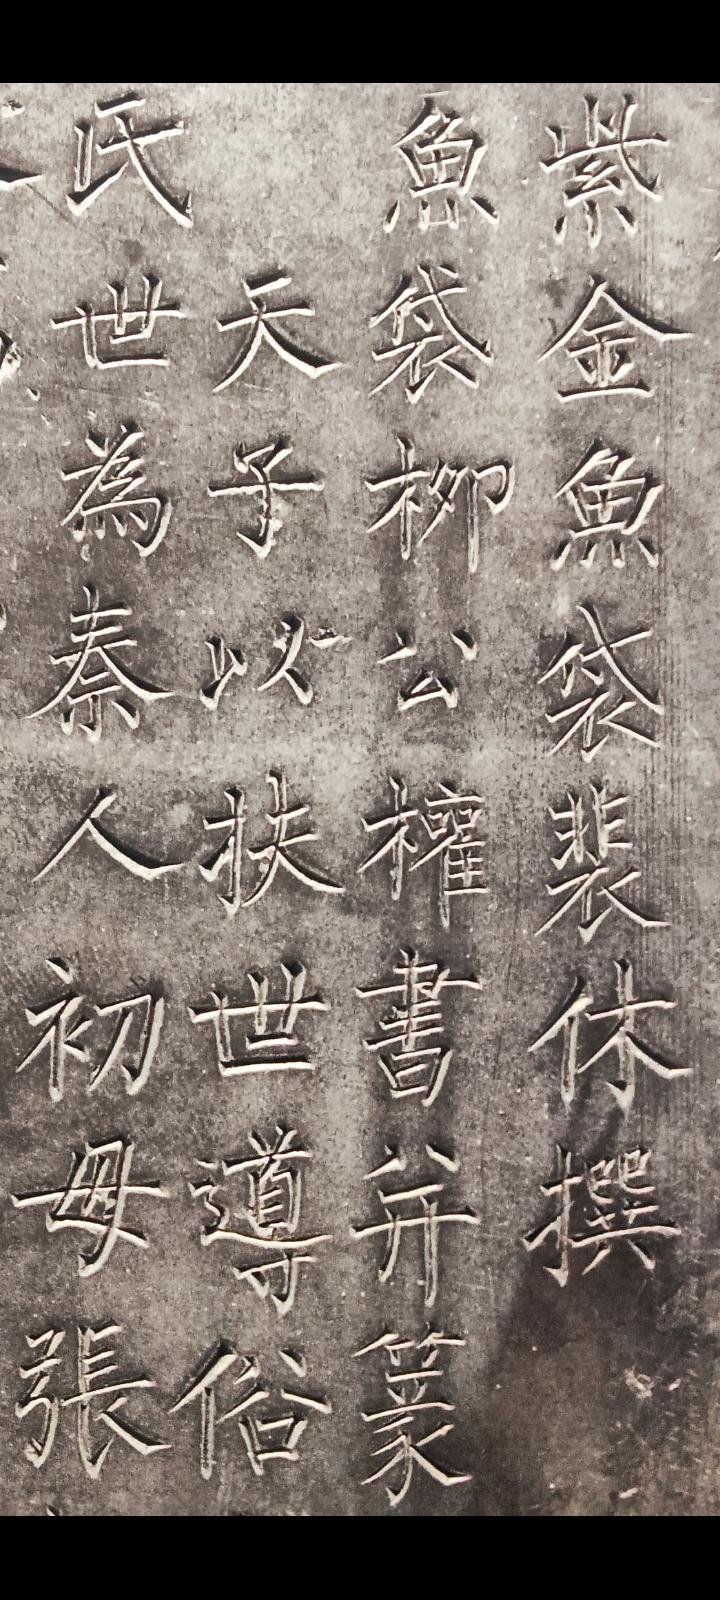 紫金魚袋裴休撰
魚袋柳公權書并篆
天子以扶世導俗
氏世為秦人初母張